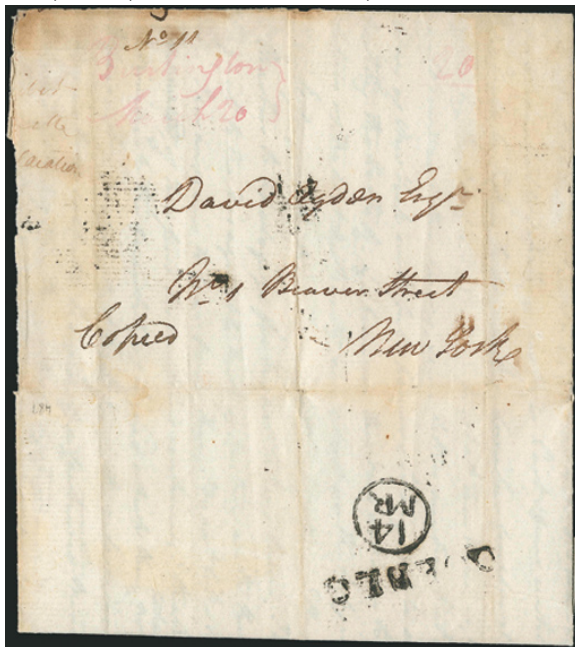 No 11
Burlington
March 20
20
David Ogden Esqr
No 1 Beaver Street
Copied
New York
14
MR